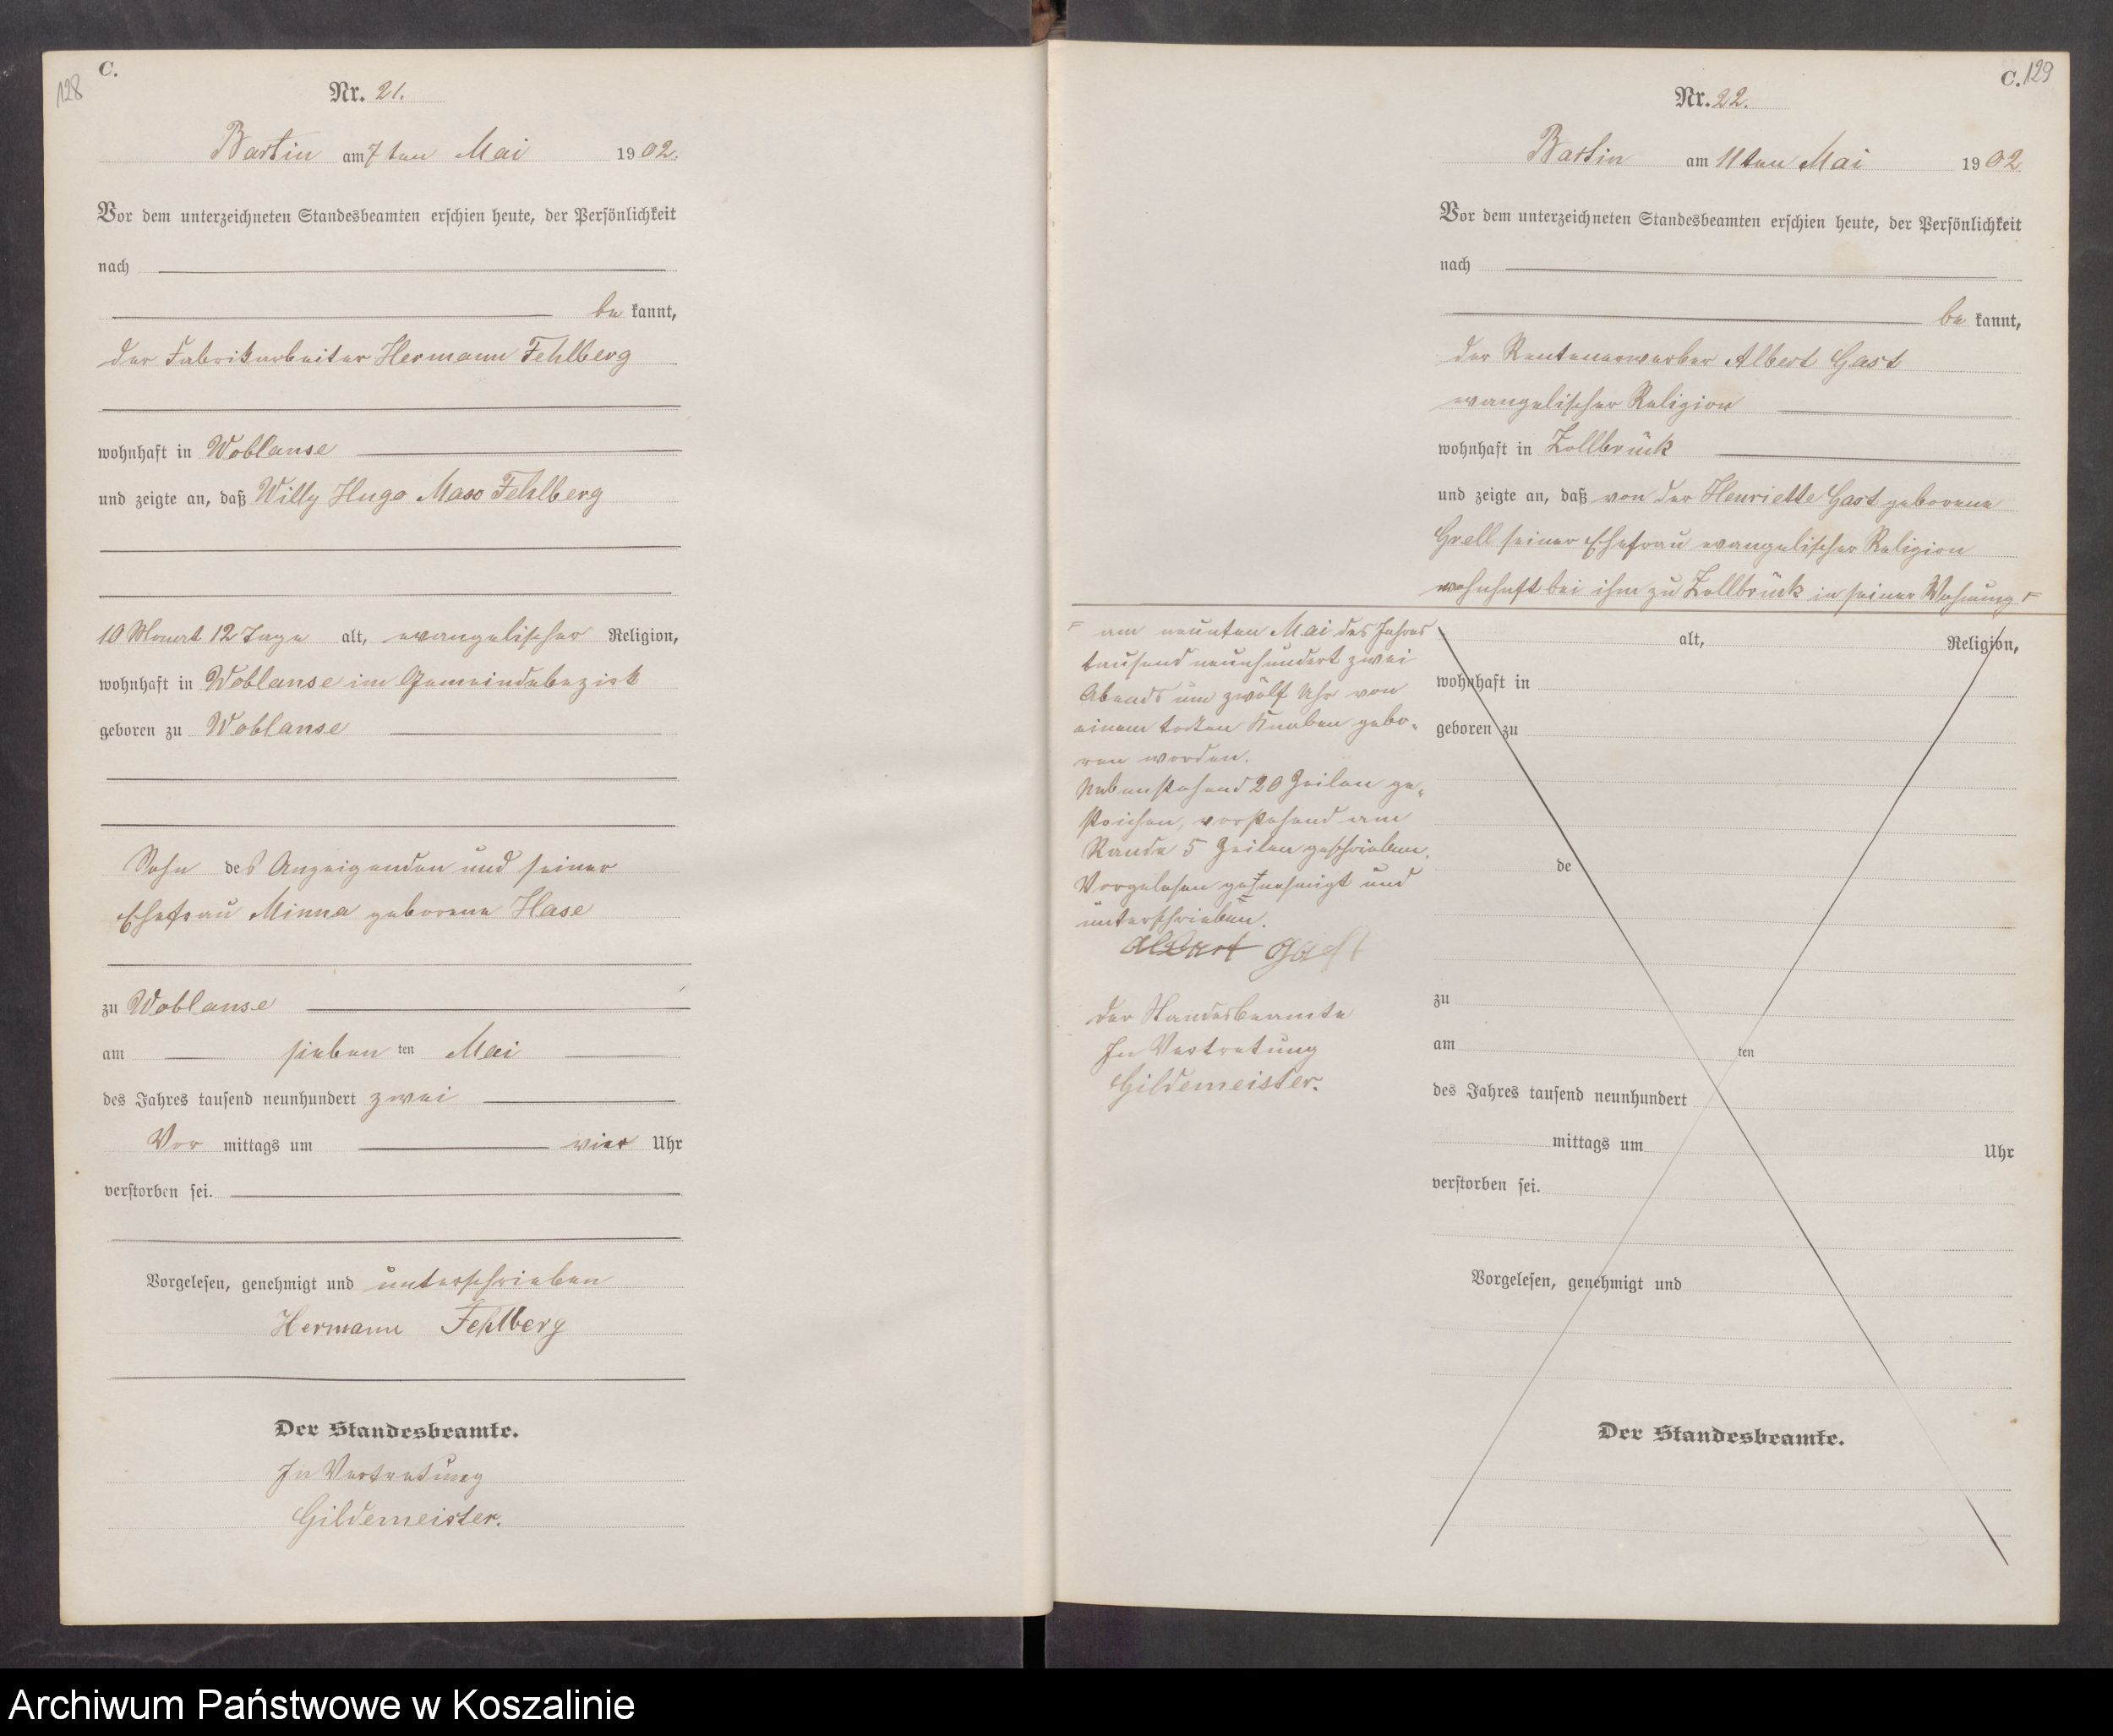 128
C.
Nr. 21.
Bartin am 7ten Mai 1902.
Vor dem unterzeichneten Standesbeamten erschien heute, der Persönlichkeit
nach
be kannt,
der Fabrikarbeiter Hermann Fehlberg
wohnhaft in Woblanse
und zeigte an, daß Willy Hugo Max Fehlberg
10 Monat 12 Tage alt, evangelischer Religion,
wohnhaft in Woblanse im Gemeindebezirk
geboren zu Woblanse
Sohn des Anzeigenden und seiner
Ehefrau Minna geborene Hase
zu Woblanse
am sieben ten Mai
des Jahres tausend neunhundert zwei
Vor mittags um vier Uhr
verstorben sei.
Vorgelesen, genehmigt und unterschrieben
Hermann Fehlberg
Der Standesbeamte.
In Vertretung
Gildemeister.
C. 129
Nr. 22.
Bartin am 11ten Mai 1902
Vor dem unterzeichneten Standesbeamten erschien heute, der Persönlichkeit
nach
be kannt,
der Rentenerwerber Albert Gast
evangelischer Religion
wohnhaft in Zollbrück
und zeigte an, daß von der Henriette Gast geborene
Grell seiner Ehefrau evangelischer Religion
wohnhaft bei ihm zu Zollbrück in seiner Wohnung
am neunten Mai des Jahres
tausend neunhundert zwei
Abends um zwölf Uhr von
einem todten Knaben gebo-
ren worden.
Nebenstehend 20 Zeilen ge-
strichen, vorstehend am
Rande 5 Zeilen geschrieben.
Vorgelesen genehmigt und
unterschrieben.
Albert Gast
Der Standesbeamte
In Vertretung
Gildemeister.
alt, Religion,
wohnhaft in
geboren zu
de
zu
am ten
des Jahres tausend neunhundert
mittags um Uhr
verstorben sei.
Vorgelesen, genehmigt und
Der Standesbeamte.
Archiwum Państwowe w Koszalinie